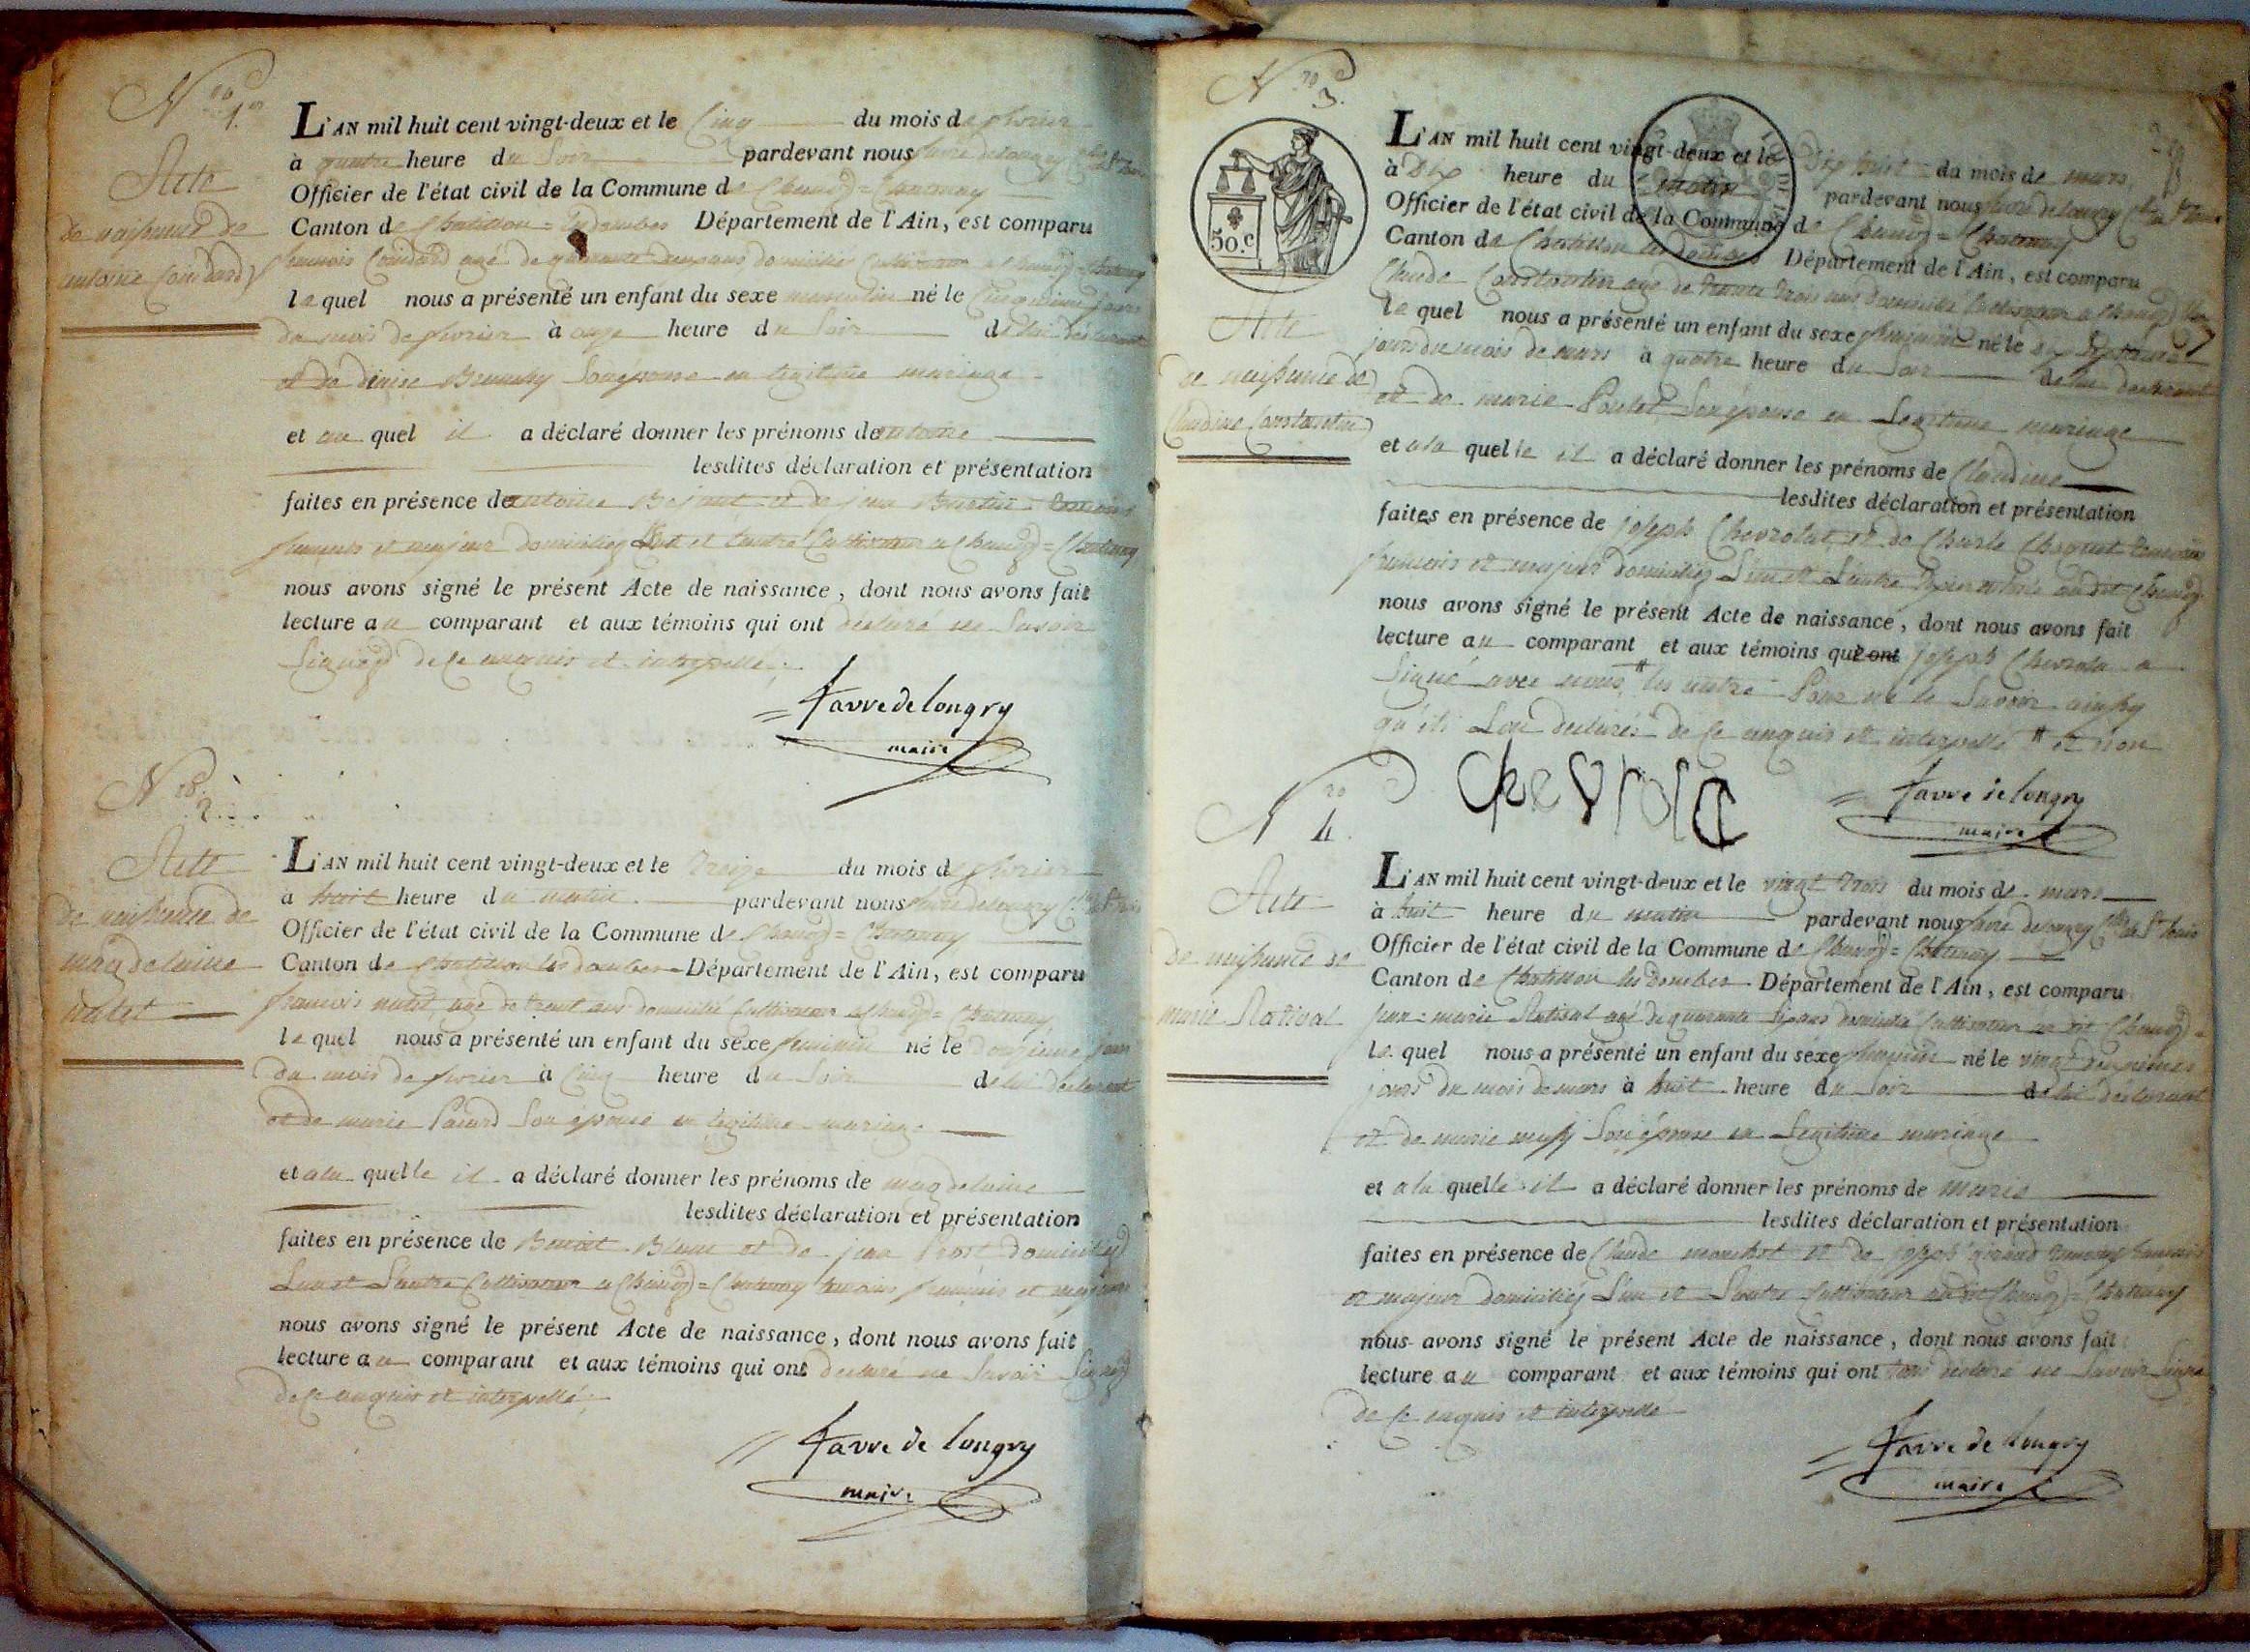 N.ro 1.er
Acte
de naissance de
antoine Coindard
L'AN mil huit cent vingt-deux et le Cinq du mois de fevrier
à quatre heure du Soir pardevant nous favre delongry
Officier de l'état civil de la Commune de Chanoz=Chatenay
Canton de Chatillon=les dombes Département de l'Ain, est comparu
francois Coindard agé de quarante deux ans domicilié Cultivateur a Chanoz=Chatenay
le quel nous a présenté un enfant du sexe masculin né le Cinquieme jours
du mois de fevrier à onze heure du Soir de lui déclarant
et de denise Son épouse en legitime mariage
et au quel il a déclaré donner les prénoms de antoine
lesdites déclaration et présentation
faites en présence de antoine et de jean temoins
francais et majeur domiciliez L'un et L'autre Cultivateur a Chanoz=Chatenay
nous avons signé le présent Acte de naissance, dont nous avons fait
lecture au comparant et aux témoins qui ont declaré ne Savoir
Signez de Ce enquis et interpellé
favre de longry
maire
N.ro 2.
Acte
de naissance de
magdelaine
natet
L'AN mil huit cent vingt-deux et le treize du mois de fevrier
à huit heure du matin pardevant nous favre delongry
Officier de l'état civil de la Commune de Chanoz=Chatenay
Canton de Chatillon les dombes Département de l'Ain, est comparu
francois natet agé de trent ans domicilié Cultivateur a Chanoz=Chatenay
le quel nous a présenté un enfant du sexe feminin né le douzieme jour
du mois de fevrier à Cinq heure du Soir de lui déclarant
et de marie Son épouse en legitime mariage
et ala quelle il a déclaré donner les prénoms de magdelaine
lesdites déclaration et présentation
faites en présence de Benoit Blanc et de jean Prost domiciliez
L'un et L'autre Cultivateur a Chanoz=Chatenay temoins francais et majeurs
nous avons signé le présent Acte de naissance, dont nous avons fait
lecture au comparant et aux témoins qui ont declaré ne Savoir Signez
de Ce enquis et interpellé
favre de longry
maire
N.ro 3.
50.C
Acte
de naissance de
Claudine Constantin
L'AN mil huit cent vingt-deux et le Dix huit du mois de mars
à Dix heure du matin pardevant nous favre delongry
Officier de l'état civil de la Commune de Chanoz=Chatenay
Canton de Chatillon les dombes Département de l'Ain, est comparu
Claude Constantin agé de trente trois ans domicilié Cultivateur a Chanoz
le quel nous a présenté un enfant du sexe feminin né le dix Septieme
jours du mois de mars à quatre heure du Soir de lui declarant
et de marie Poulet Son épouse en Legitime mariage
et ala quelle il a déclaré donner les prénoms de Claudine
lesdites déclaration et présentation
faites en présence de joseph Chevrolat et de Charle temoins
francais et majeur domiciliez L'un et L'autre audit Chanoz
nous avons signé le présent Acte de naissance, dont nous avons fait
lecture au comparant et aux témoins qui ont joseph Chevrolat a
Signé avec nous # les autre Pour ne le Savoir ainsy
qu'ils L'on declarés de Ce enquis et interpellé # et non
chevrola
favre de longry
maire
N.ro 4.
Acte
de naissance de
marie Rativat
L'AN mil huit cent vingt-deux et le vingt trois du mois de mars
à huit heure du matin pardevant nous favre delongry
Officier de l'état civil de la Commune de Chanoz=Chatenay
Canton de Chatillon les Dombes Département de l'Ain, est comparu
jean=marie Rativat agé de quarante Six ans domicilié Cultivateur au dit Chanoz=
le quel nous a présenté un enfant du sexe feminin né le vingt deuxiemes
jours du mois de mars à huit heure du Soir de lui déclarant
et de marie Son épouse en Legitime mariage
et a la quelle il a déclaré donner les prénoms de marie
lesdites déclaration et présentation
faites en présence de Claude et de joseph temoins francais
et majeur domiciliez L'un et L'autre Cultivateur audit Chanoz=Chatenay
nous avons signé le présent Acte de naissance, dont nous avons fait
lecture au comparant et aux témoins qui ont tous declaré ne Savoir Signe
de Ce enquis et interpelle
favre de longry
maire